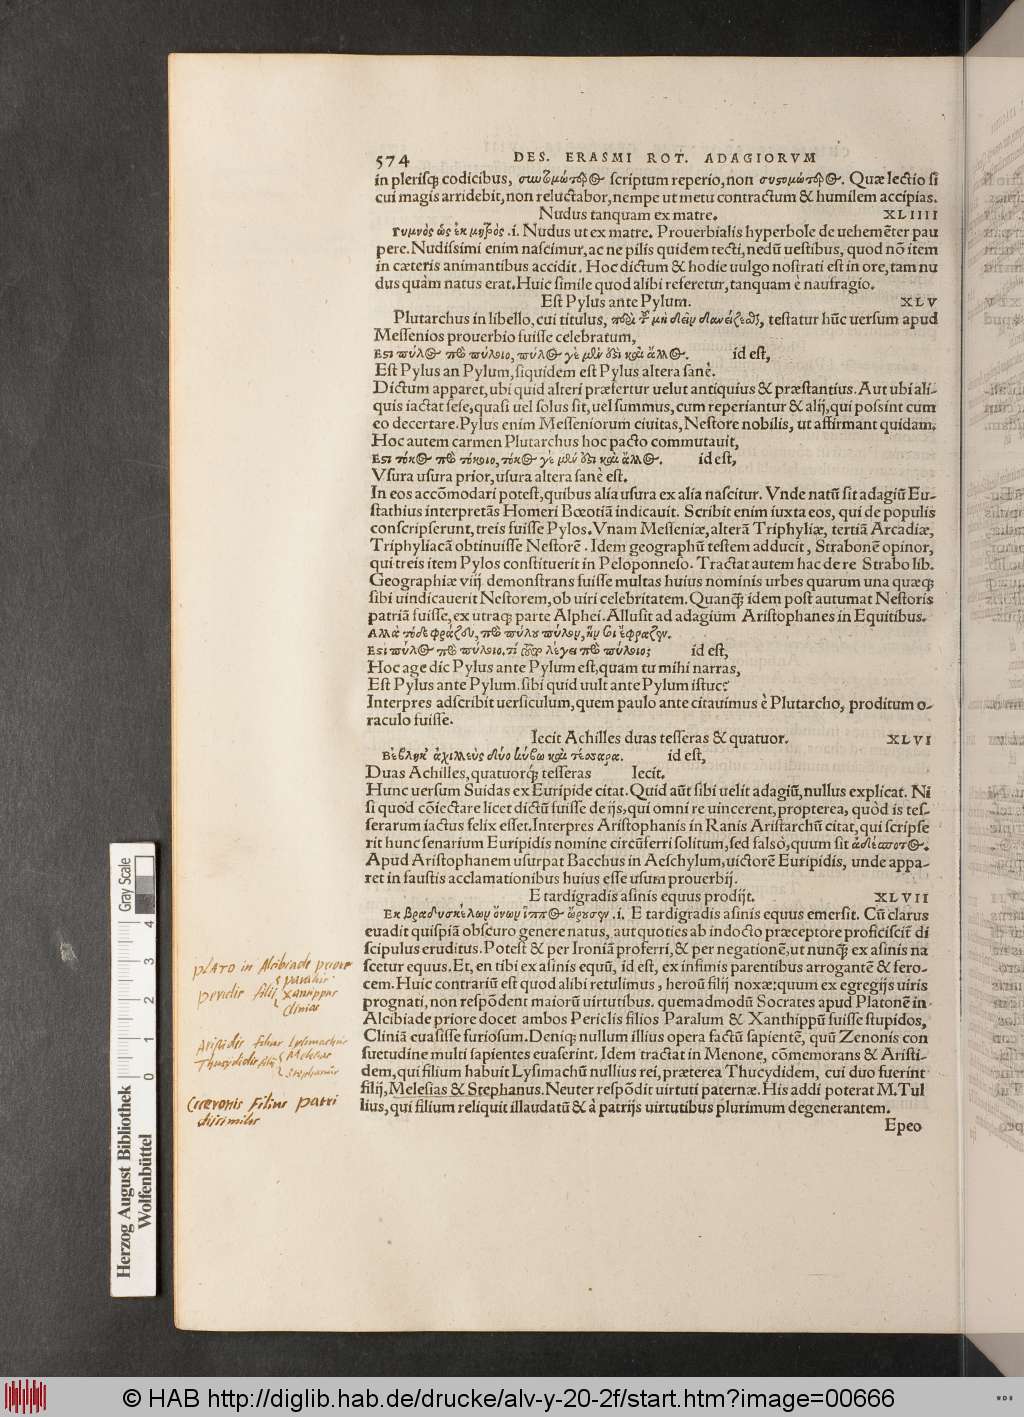 574 DES. ERASMI ROT. ADAGIORVM
in pleriſq; codicibus, ſcriptum reperio, non Quæ lectio ſi
cui magis arridebit, non reluctabor, nempe ut metu contractum & humilem accipias.
Nudus tanquam ex matre. XLIIII
Γυμνὸς ὡς ἐκ μητρὸς .i. Nudus ut ex matre. Prouerbialis hyperbole de uehemẽter pau
pere. Nudiſſimi enim naſcimur, ac ne pilis quidem tecti, nedũ ueſtibus, quod nõ item
in cæteris animantibus accidit. Hoc dictum & hodie uulgo noſtrati eſt in ore, tam nu
dus quàm natus erat. Huic ſimile quod alibi referetur, tanquam è naufragio.
Eſt Pylus ante Pylum. XLV
Plutarchus in libello, cui titulus, περὶ τοῦ μὴ δεῖν δανείζεσθαι, teſtatur hũc uerſum apud
Meſſenios prouerbio fuiſſe celebratum,
Εστι πύλος πρὸ πύλοιο, πύλος γε μὲν ὅστι καὶ ἄλλος. id eſt,
Eſt Pylus an Pylum, ſiquidem eſt Pylus altera ſanè.
Dictum apparet, ubi quid alteri præfertur uelut antiquius & præſtantius. Aut ubi ali-
quis iactat ſeſe, quaſi uel ſolus ſit, uel ſummus, cum reperiantur & alij, qui poſſint cum
eo decertare. Pylus enim Meſſeniorum ciuitas, Neſtore nobilis, ut affirmant quidam.
Hoc autem carmen Plutarchus hoc pacto commutauit,
Εστι τόκος πρὸ τόκοιο, τόκος γε μὲν ὅστι καὶ ἄλλος. id eſt,
Vſura uſura prior, uſura altera ſanè eſt.
In eos accõmodari poteſt, quibus alia uſura ex alia naſcitur. Vnde natũ ſit adagiũ Eu-
ſtathius interpretãs Homeri Bœotiã indicauit. Scribit enim iuxta eos, qui de populis
conſcripſerunt, treis fuiſſe Pylos. Vnam Meſſeniæ, alterã Triphyliæ, tertiã Arcadiæ,
Triphyliacã obtinuiſſe Neſtorẽ. Idem geographũ teſtem adducit, Strabonẽ opinor,
qui treis item Pylos conſtituerit in Peloponneſo. Tractat autem hac de re Strabo lib.
Geographiæ viij demonſtrans fuiſſe multas huius nominis urbes quarum una quæq;
ſibi uindicauerit Neſtorem, ob uiri celebritatem. Quanq; idem poſt autumat Neſtoris
patriã fuiſſe, ex utraq; parte Alphei. Alluſit ad adagium Ariſtophanes in Equitibus.
Αλλὰ τόδε φράζου, πρὸ πύλου πύλον, ἥν σοι ἔφραζον.
Εστι πύλος πρὸ πύλοιο. τί τοῦτο λέγει πρὸ πύλοιο; id eſt,
Hoc age dic Pylus ante Pylum eſt, quam tu mihi narras,
Eſt Pylus ante Pylum. ſibi quid uult ante Pylum iſtuc?
Interpres adſcribit uerſiculum, quem paulo ante citauimus è Plutarcho, proditum o-
raculo fuiſſe.
Iecit Achilles duas teſſeras & quatuor. XLVI
Βέβληκ' ἀχιλλεὺς δύο κύβω καὶ τέσσαρα. id eſt,
Duas Achilles, quatuorq; teſſeras Iecit.
Hunc uerſum Suidas ex Euripide citat. Quid aũt ſibi uelit adagiũ, nullus explicat. Ni
ſi quod cõiectare licet dictũ fuiſſe de ijs, qui omni re uincerent, propterea, quòd is teſ-
ſerarum iactus felix eſſet. Interpres Ariſtophanis in Ranis Ariſtarchũ citat, qui ſcripſe
rit hunc ſenarium Euripidis nomine circũferri ſolitum, ſed falsò, quum ſit ἀδέσποτος.
Apud Ariſtophanem uſurpat Bacchus in Aeſchylum, uictorẽ Euripidis, unde appa-
ret in fauſtis acclamationibus huius eſſe uſum prouerbij.
E tardigradis aſinis equus prodijt. XLVII
Εκ βραδυσκέλων ὄνων ἵππος ὤρουσεν .i. E tardigradis aſinis equus emerſit. Cũ clarus
euadit quiſpiã obſcuro genere natus, aut quoties ab indocto præceptore proficiſcit̃ di
ſcipulus eruditus. Poteſt & per Ironiã proferri, & per negationẽ, ut nunq; ex aſinis na
ſcetur equus. Et, en tibi ex aſinis equũ, id eſt, ex infimis parentibus arrogantẽ & fero-
cem. Huic contrariũ eſt quod alibi retulimus, heroũ filij noxæ: quum ex egregijs uiris
prognati, non reſpõdent maiorũ uirtutibus. quemadmodũ Socrates apud Platonẽ in
Alcibiade priore docet ambos Periclis filios Paralum & Xanthippũ fuiſſe ſtupidos,
Cliniã euaſiſſe furioſum. Deniq; nullum illius opera factũ ſapientẽ, quũ Zenonis con
ſuetudine multi ſapientes euaſerint. Idem tractat in Menone, cõmemorans & Ariſti-
dem, qui filium habuit Lyſimachũ nullius rei, præterea Thucydidem, cui duo fuerint
filij, Meleſias & Stephanus. Neuter reſpõdit uirtuti paternæ. His addi poterat M. Tul
lius, qui filium reliquit illaudatũ & à patrijs uirtutibus plurimum degenerantem.
Epeo
PLATO in Alcibiade priore
Periclis filij
Paralus
Xantippus
Clinias
Aristidis filius Lysimachus
Thucydidis filij
Melesias
Stephanus
Ciceronis Filius patri
dissimilis
Gray Scale
0 1 2 3 4
Herzog August Bibliothek
Wolfenbüttel
© HAB http://diglib.hab.de/drucke/alv-y-20-2f/start.htm?image=00666